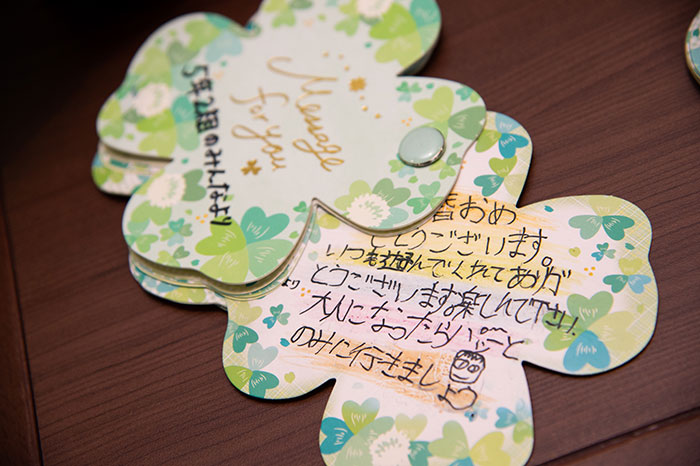 Message
for you
5年2組のみんなより
婚おめ
でとうございます。
いつも遊んでくれてありが
とうございます楽しんで下さい!
大人になったらパーッと
のみに行きましょう